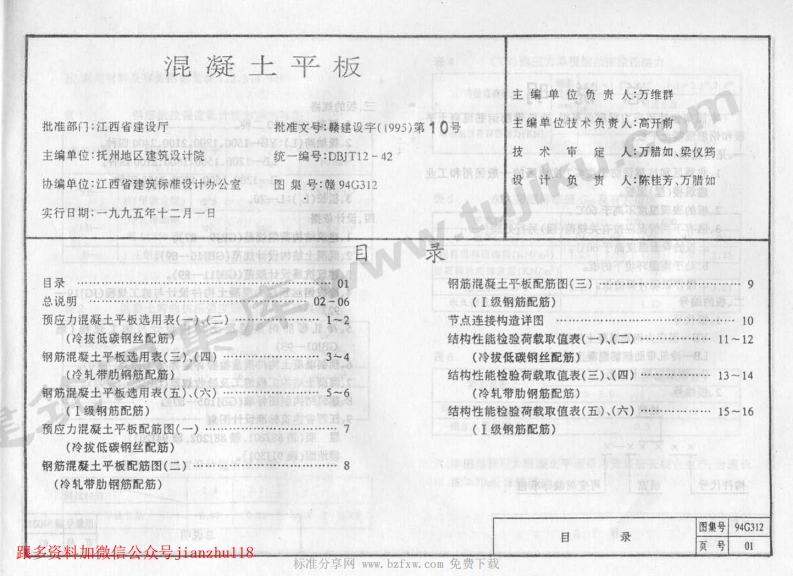 混凝土平板
批准部门:江西省建设厅
批准文号:赣建设字(1995)第10号
主编单位:抚州地区建筑设计院
统一编号:DBJT12-42
协编单位:江西省建筑标准设计办公室
图集号:赣94G312
实行日期:一九九五年十二月一日
主编单位负责人:万维群
主编单位技术负责人:高开楠
技术审定人:万腊如、梁仪筠
设计负责人:陈桂芳、万腊如
目录
目录 01
总说明 02-06
预应力混凝土平板选用表(一)、(二) 1~2
(冷拔低碳钢丝配筋)
钢筋混凝土平板选用表(三)、(四) 3~4
(冷轧带肋钢筋配筋)
钢筋混凝土平板选用表(五)、(六) 5~6
(Ⅰ级钢筋配筋)
预应力混凝土平板配筋图(一) 7
(冷拔低碳钢丝配筋)
钢筋混凝土平板配筋图(二) 8
(冷轧带肋钢筋配筋)
钢筋混凝土平板配筋图(三) 9
(Ⅰ级钢筋配筋)
节点连接构造详图 10
结构性能检验荷载取值表(一)、(二) 11~12
(冷拔低碳钢丝配筋)
结构性能检验荷载取值表(三)、(四) 13~14
(冷轧带肋钢筋配筋)
结构性能检验荷载取值表(五)、(六) 15~16
(Ⅰ级钢筋配筋)
目录
图集号 94G312
页号 01
跟多资料加微信公众号jianzhu118
标准分享网 www.bzfxw.com 免费下载
www.tujiku.com